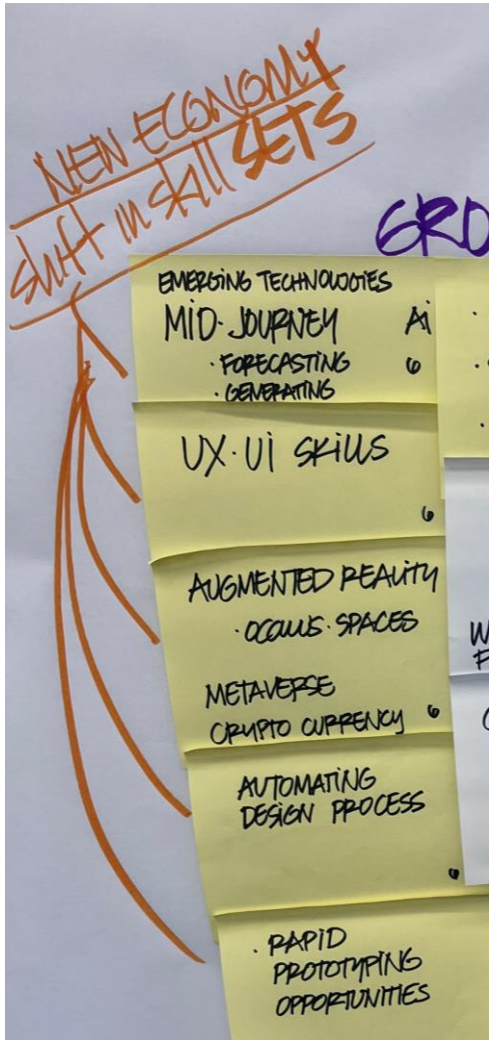 NEW ECONOMY
shift in skill SETS
GRO
EMERGING TECHNOLOGIES
MID-JOURNEY Ai
· FORECASTING 6
· GENERATING
UX·Ui SKiLLS
6
AUGMENTED REALiTY
· OCCULUS · SPACES
METAVERSE
CRYPTO CURRENCY 6
AUTOMATiNG
DESiGN PROCESS
6
· RAPiD
PROTOTYPiNG
OPPORTUNiTiES
W
F